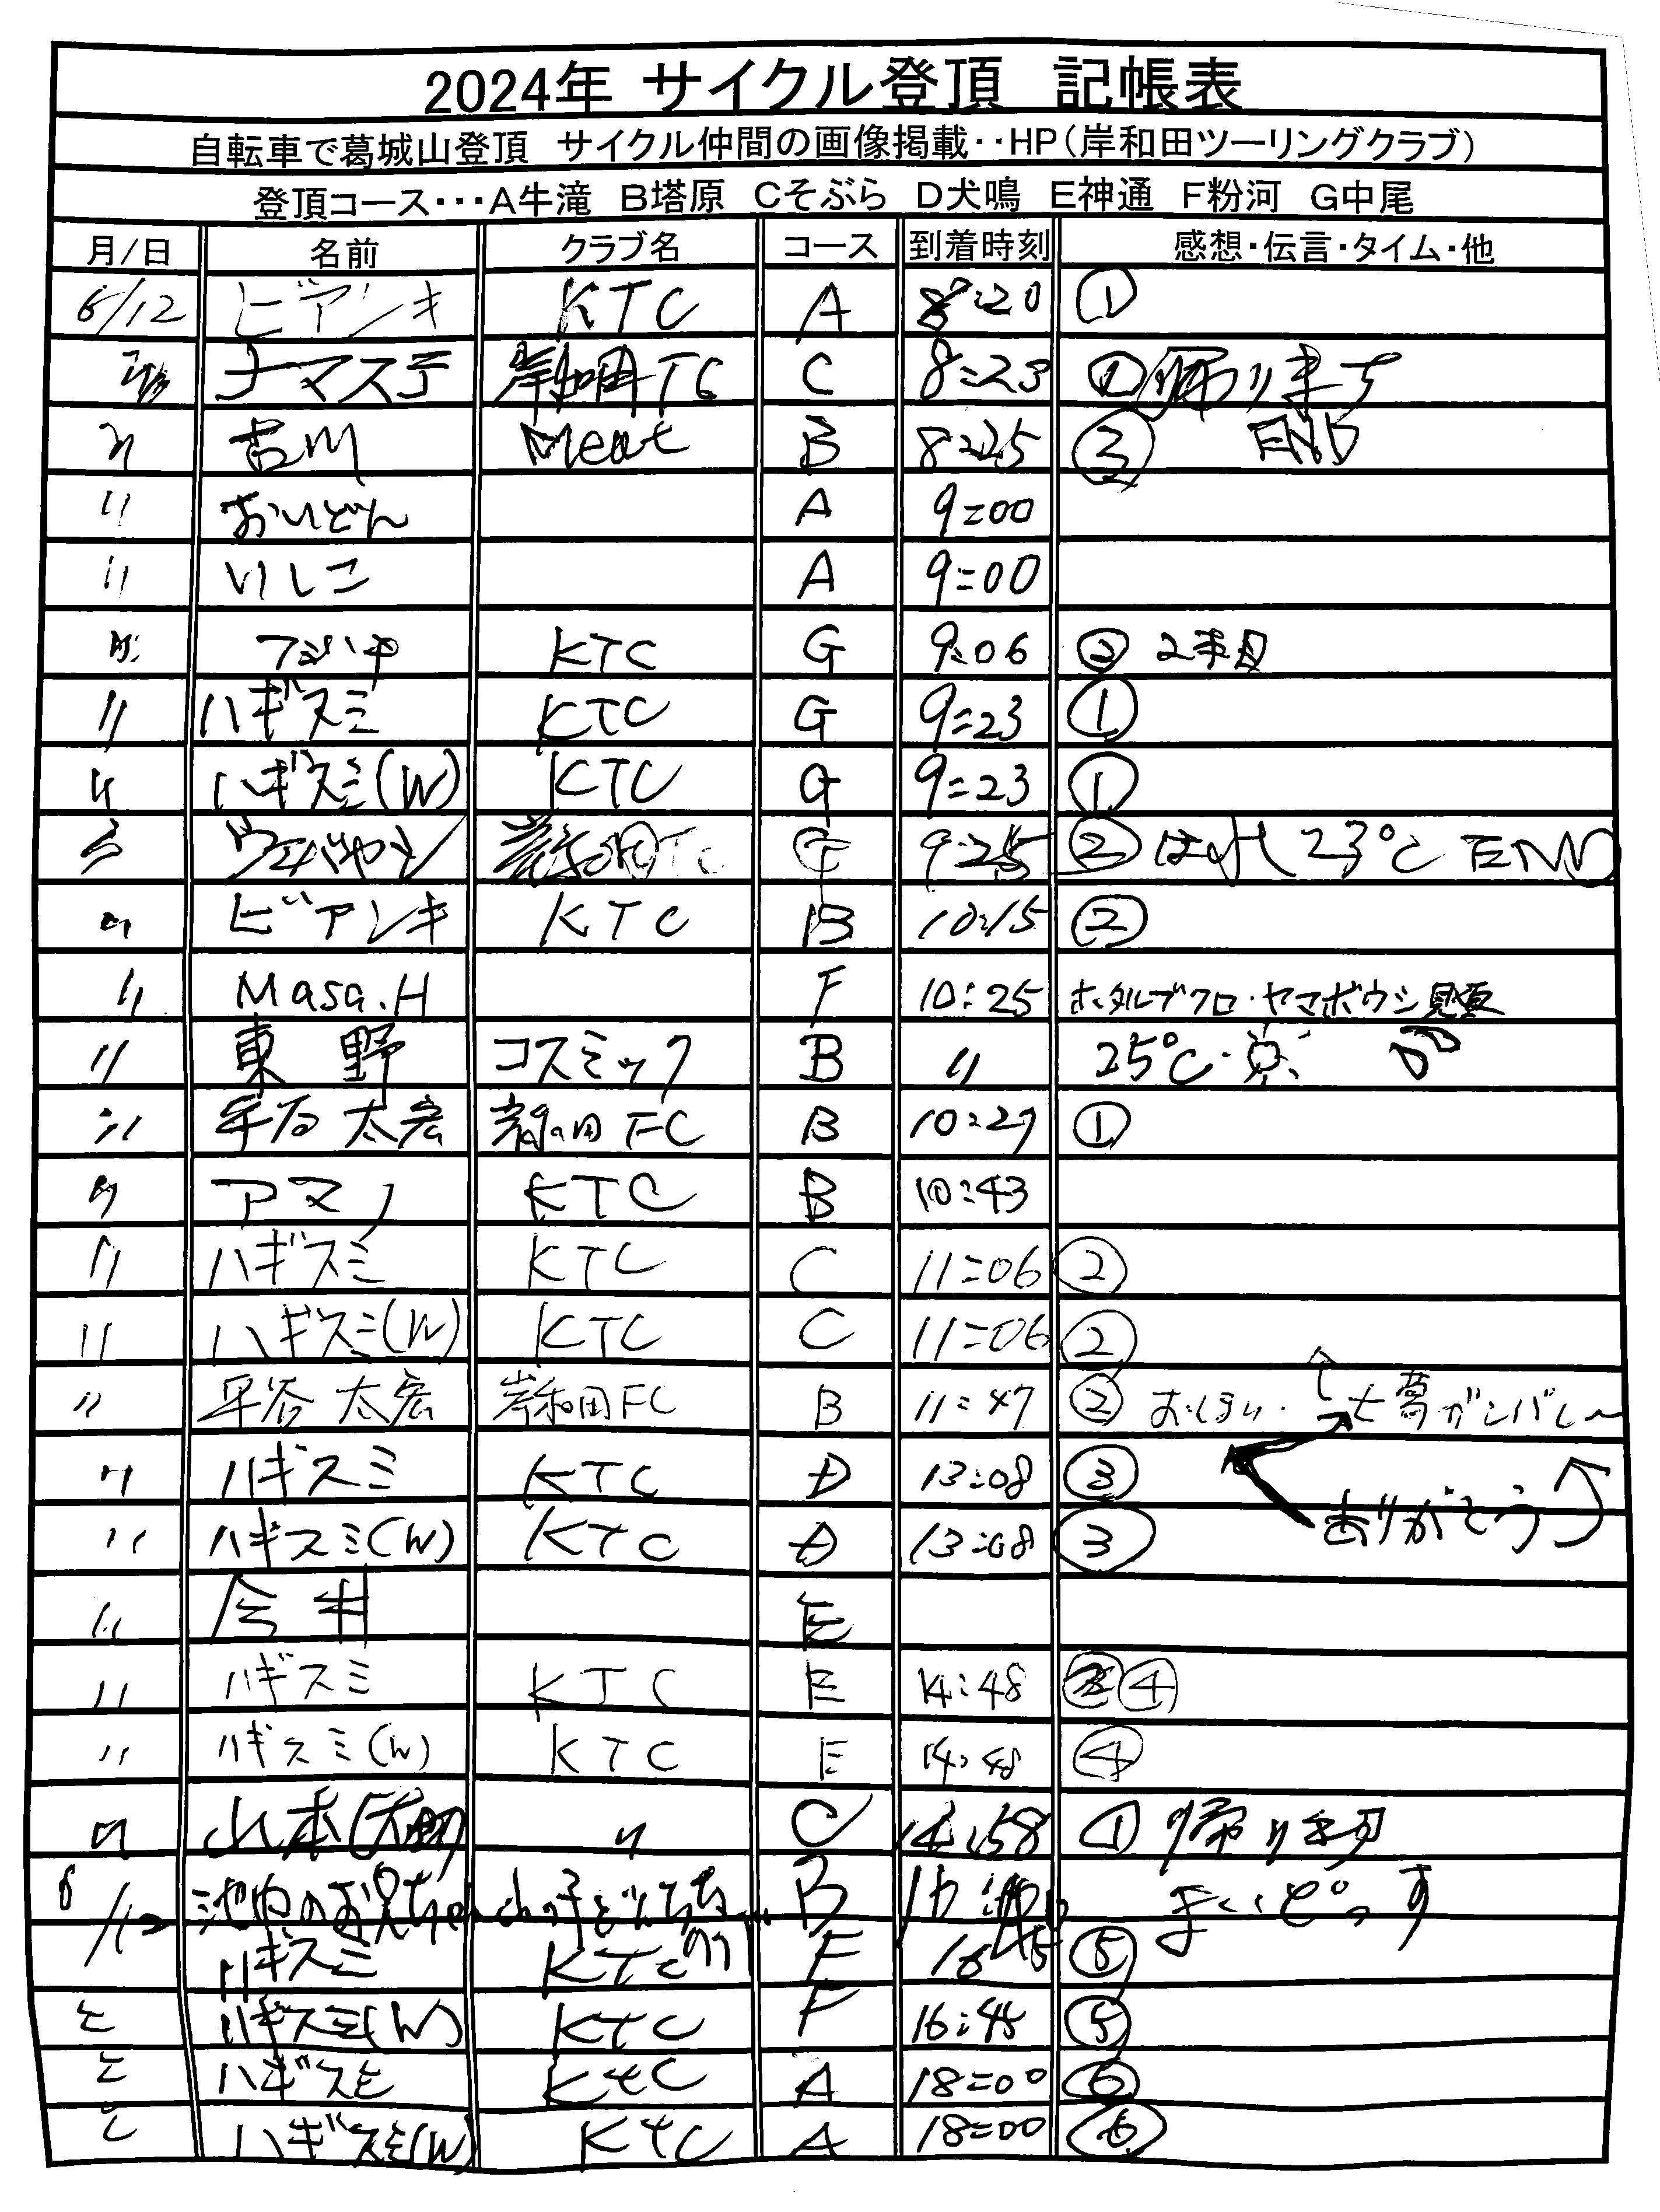 2024年 サイクル登頂 記帳表
自転車で葛城山登頂 サイクル仲間の画像掲載‥HP(岸和田ツーリングクラブ)
登頂コース・・・A牛滝 B塔原 Cそぶら D犬鳴 E神通 F粉河 G中尾
月/日 名前 クラブ名 コース 到着時刻 感想・伝言・タイム・他
6/12 ビアンキ KTC A 8:20 ①
ナマステ 岸和田TC C 8:23 ① 帰りまち
〃 吉川 Meat B 8:25 ③ END
〃 おいどん A 9:00
〃 いしこ A 9:00
〃 KTC G 9:06 ② 2本目
〃 ハギスミ KTC G 9:23 ①
〃 ハギスミ(W) KTC G 9:23 ①
9:25 ② はれ 23℃ END
〃 ビアンキ KTC B 10:15 ②
〃 Masa.H F 10:25 ホタルブクロ・ヤマボウシ見頃
〃 東野 コスミック B 〃 25℃・
〃 平谷 太宏 岸和田FC B 10:27 ①
〃 アマノ KTC B 10:43
〃 ハギスミ KTC C 11:06 ②
〃 ハギスミ(W) KTC C 11:06 ②
〃 平谷 太宏 岸和田FC B 11:47 ② ガンバレ〜
〃 ハギスミ KTC D 13:08 ③
〃 ハギスミ(W) KTC D 13:08 ③ ありがとう
〃 今井 E
〃 ハギスミ KTC E 14:48 ④
〃 ハギスミ(W) KTC E 14:48 ④
〃 山本 〃 C 14:58 ① 帰りまち
6/12 池内のお兄ちゃん B まいどっす
ハギスミ KTC F 16:45 ⑤
〃 ハギスミ(W) KTC F 16:45 ⑤
〃 ハギスミ KTC A 18:00 ⑥
〃 ハギスミ(W) KTC A 18:00 ⑥